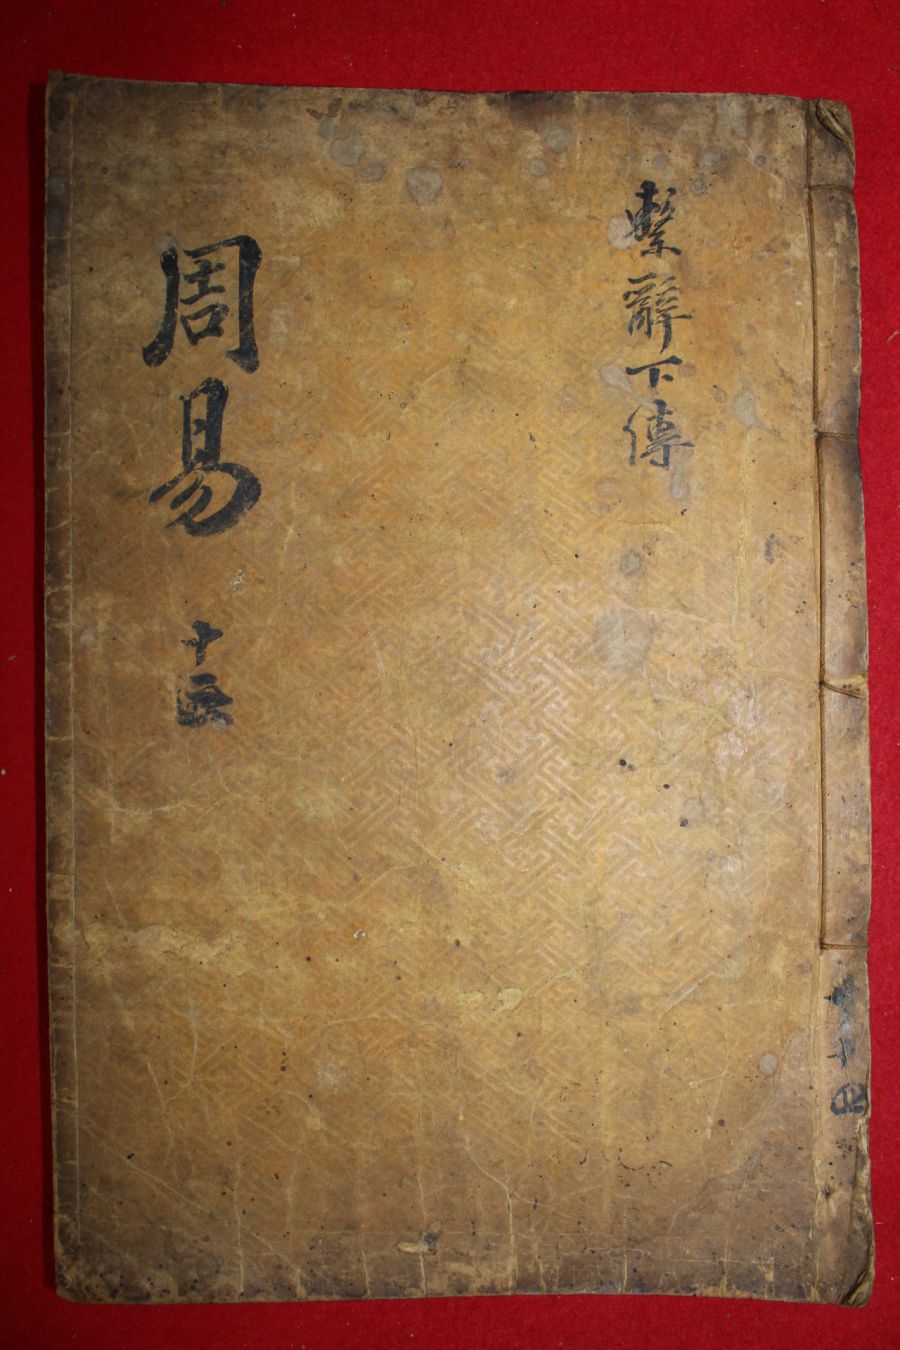 共十四
繫辭下傳
周易 十